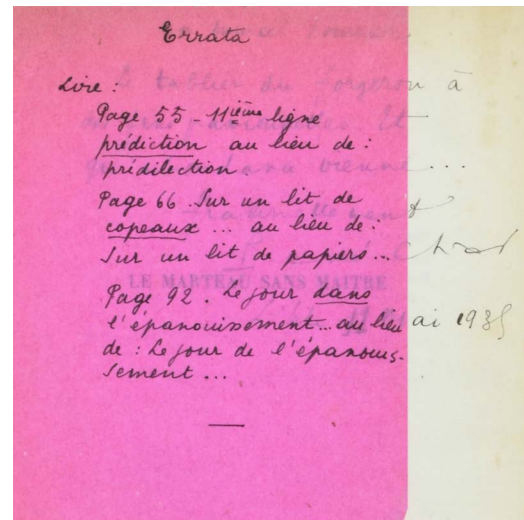 Errata
Lire :
Page 55 - 11ième ligne
prédiction au lieu de :
prédilection
Page 66. Sur un lit de
copeaux... au lieu de :
Sur un lit de papiers.
Page 92. Le jour dans
l'épanouissement... au lieu
de : Le jour de l'épanouis-
sement...
le tablier du forgeron à
Char
LE MARTEAU SANS MAITRE
ai 1935